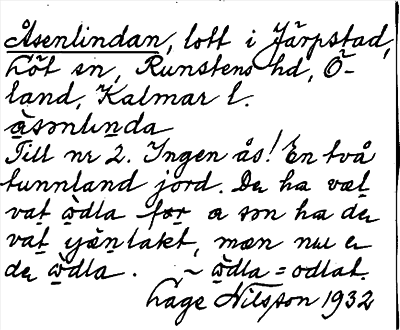 Åsenlindan, lott i Järpstad,
Löt sn, Runstens hd, Ö-
land, Kalmar l.
àsənlında
Till nr 2. Ingen ås! En två
tunnland jord. De ha væt
vat ὼdla før a som ha de
vat jæntäkt, mæn nu e
de ὼdla. ~ ὼdla = odlat.
Låge Nilsson 1932